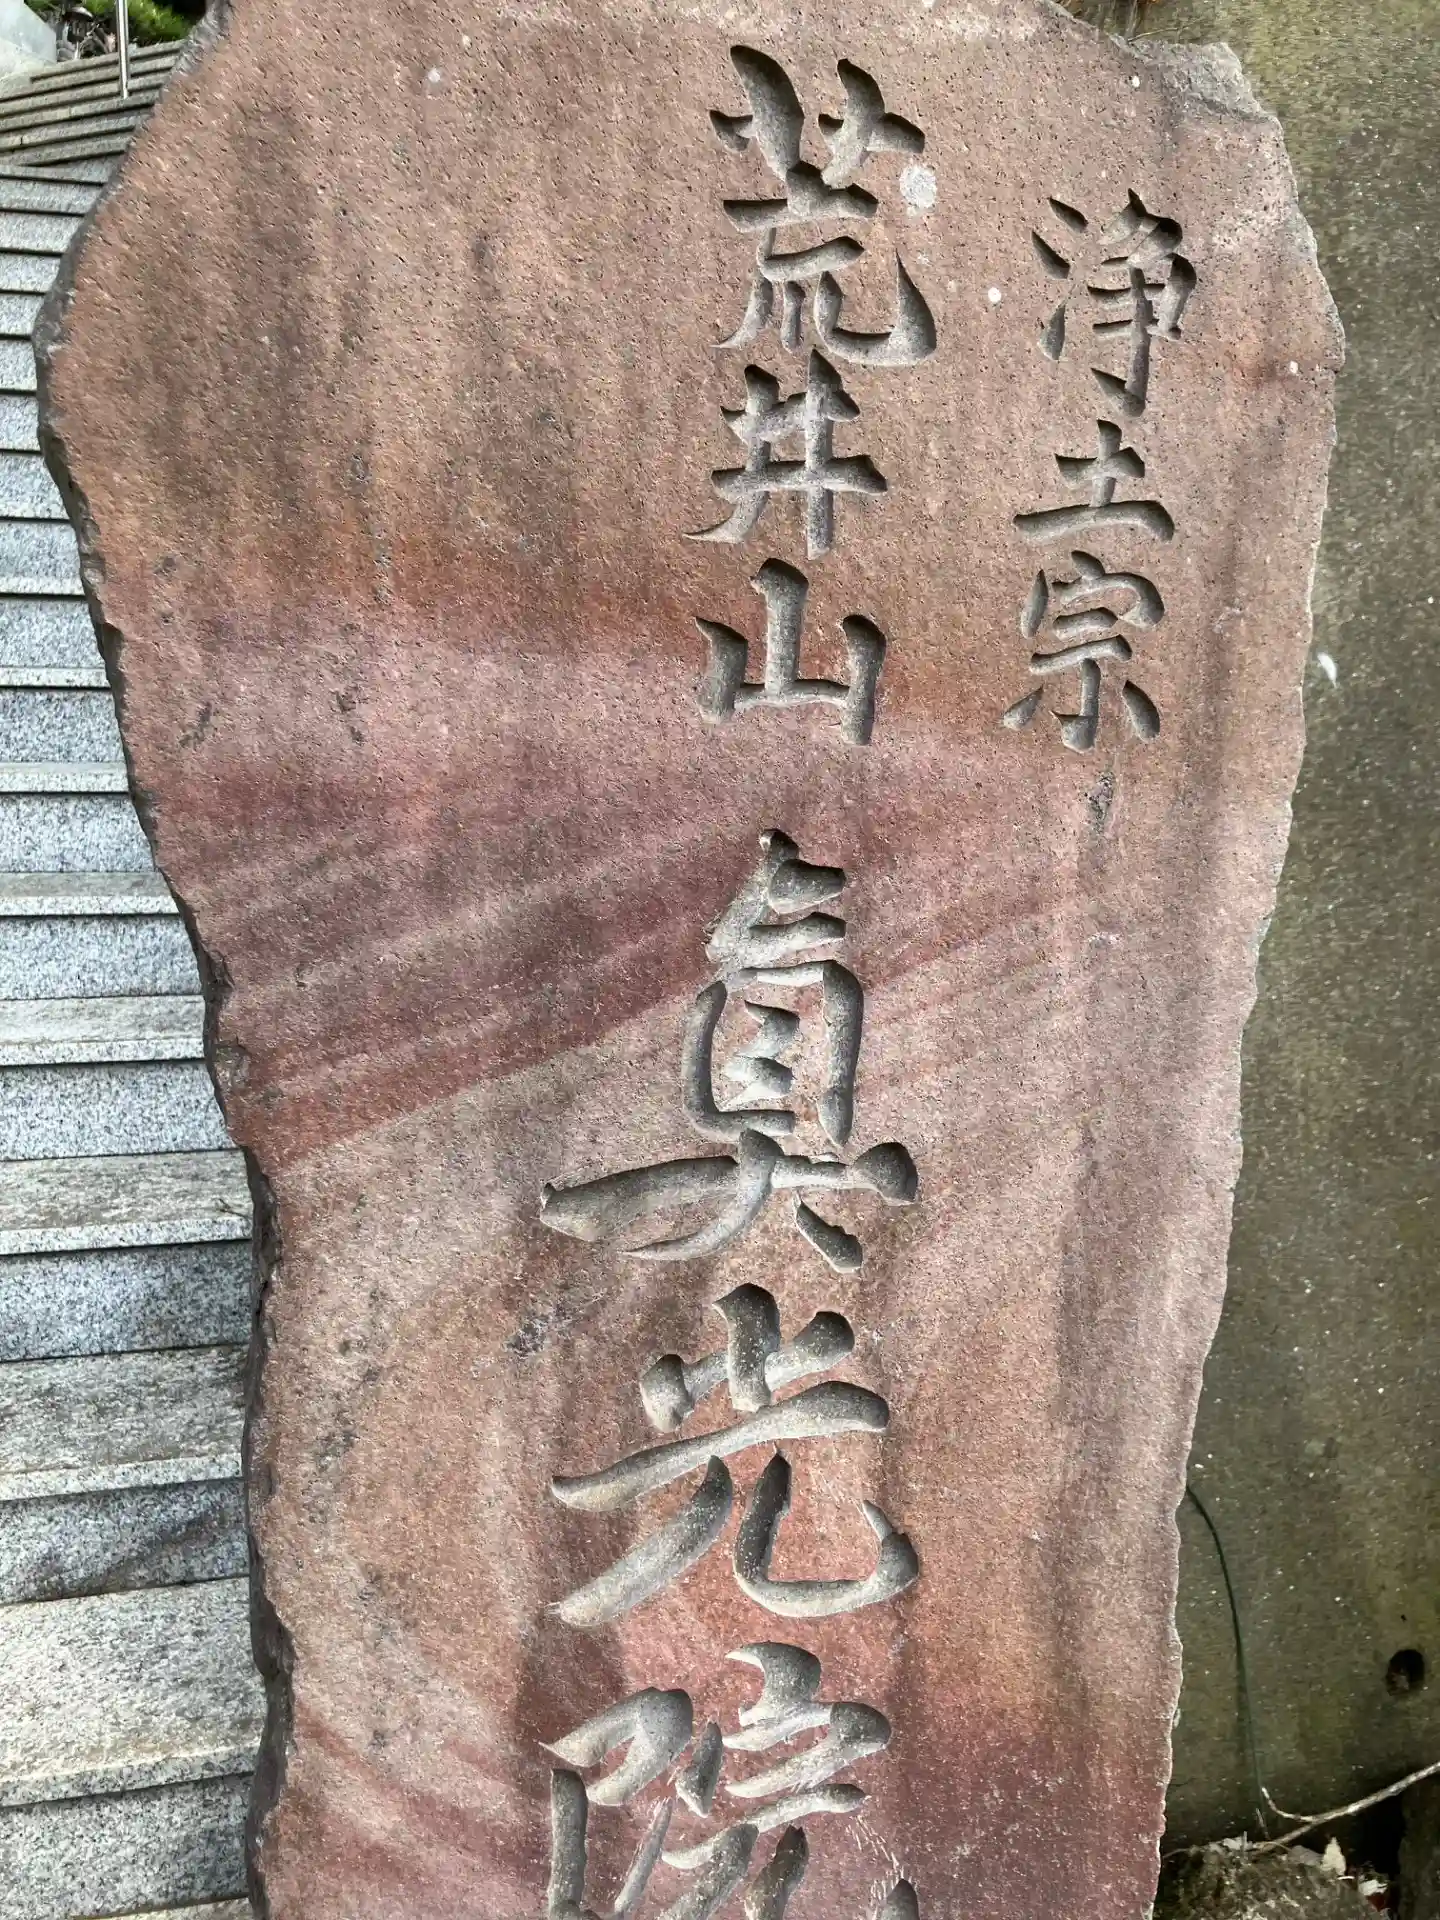 浄土宗
荒井山 真光院